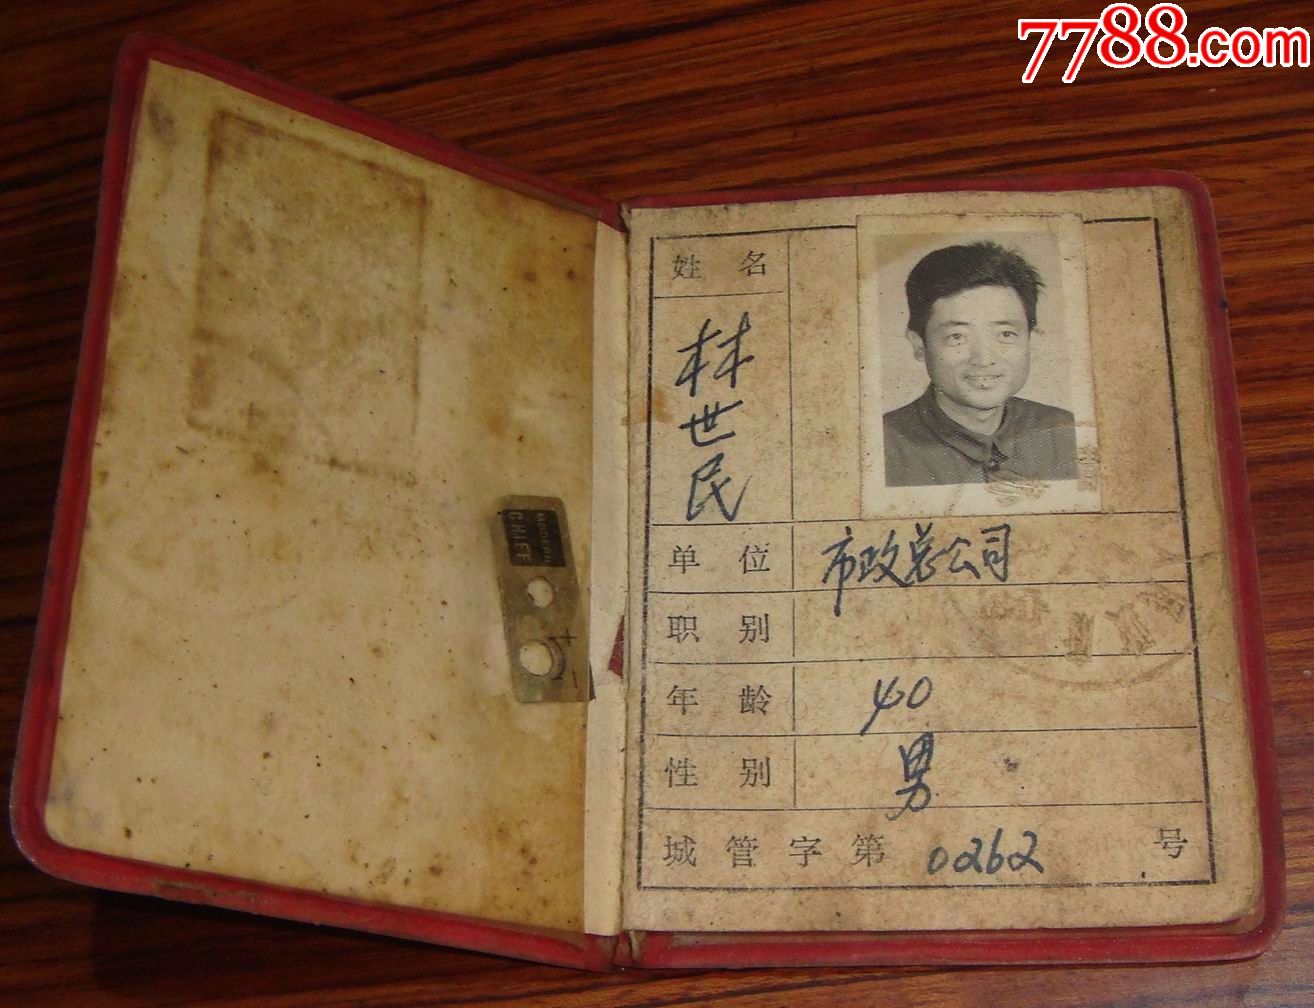 7788.com
MODERN
CHIEF
姓名
林世民
单位 市政总公司
职别
年龄 40
性别 男
城管字第0262号